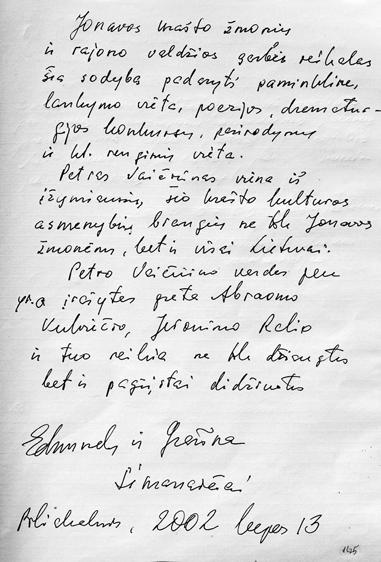 Jonavos krašto žmonių
ir rajono valdžios garbės reikalas
šią sodybą padaryti paminkline,
lankymo vieta, poezijos, dramatur-
gijos konkursų, pasirodymų
ir kt. renginių vieta.
Petras Vaičiūnas viena iš
įžymiausių šio krašto kultūros
asmenybių, brangių ne tik Jonavos
žmonėms, bet ir visai Lietuvai.
Petro Vaičiūno vardas
yra įrašytas greta Abraomo
Kulviečio, Jeronimo Ralio
ir tuo reikia ne tik džiaugtis
bet ir pagrįstai didžiuotis
Edmundas ir Gražina
Simanaičiai
2002 liepos 13